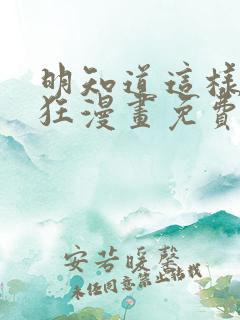 明知道這樣
狂漫畫免費
安若暖馨
未任同意禁止拮我